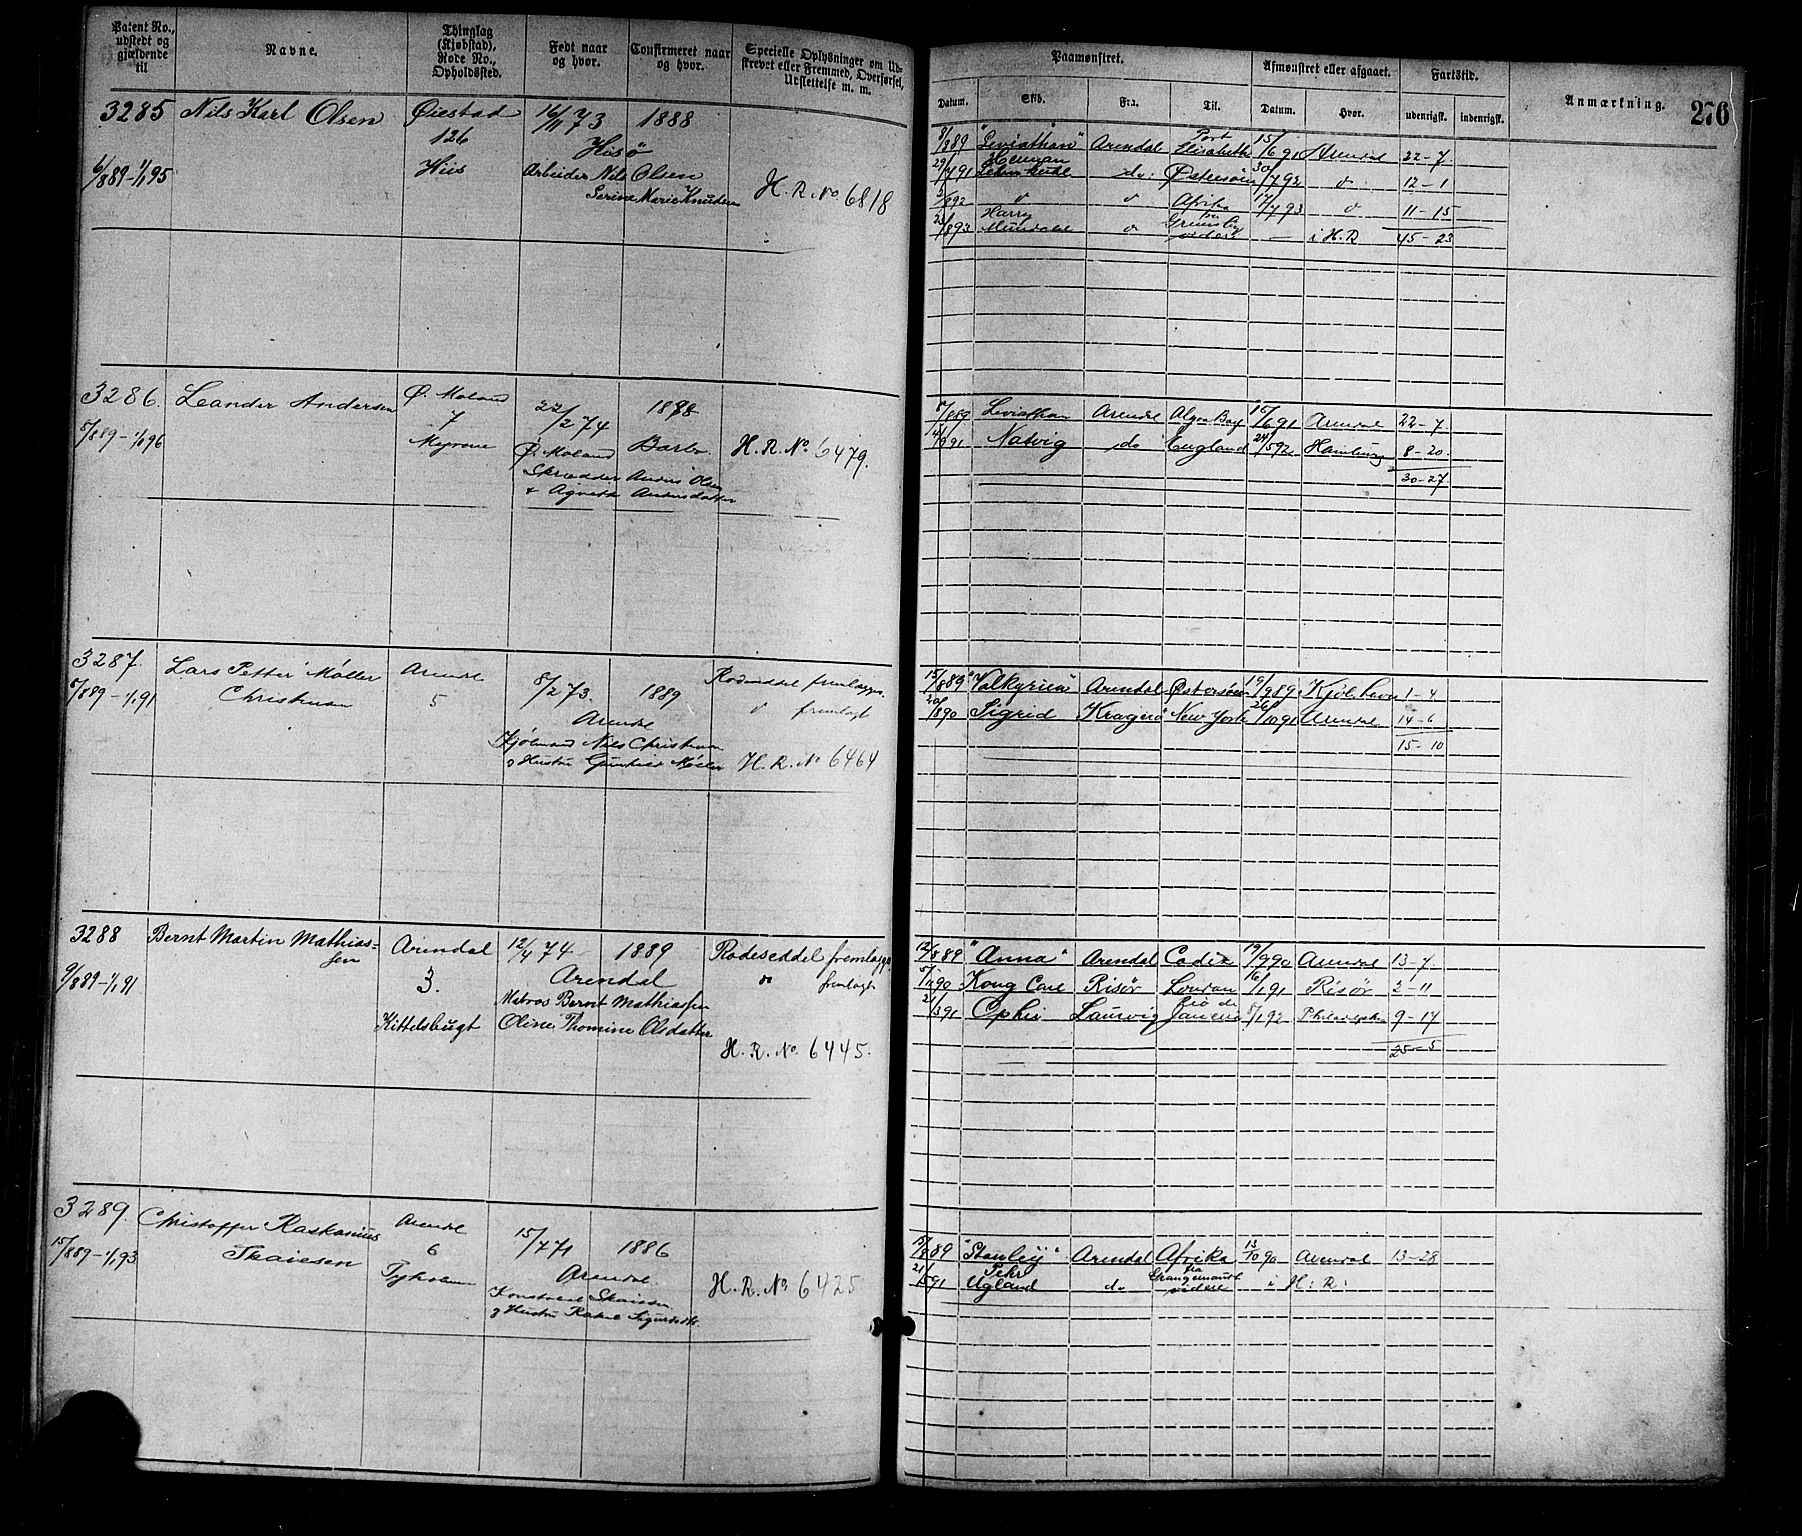 Patent No., udstedt og gjældende til
Navne.
Thinglag (Kjøbstad), Rode No., Opholdssted.
Født naar og hvor.
Confirmeret naar og hvor.
Specielle Oplysninger om Udskrevet eller Fremmed, Overførsel, Udslettelse m. m.
Paamønstret.
Datum. Skib. Fra. Til.
Afmønstret eller afgaaet.
Datum. Hvor.
Fartstid.
udenrigsk. indenrigsk.
Anmærkning.
270
3285 Nils Karl Olsen Øiestad 16/11 73 1888
126 Hisø
6/889-1/1 95 Hiis Arbeider Nils Olsen
Serine Marie Knudsen H. R. No 6818
8/889 "Leviathan" Arendal Port Elisabeth 15/6 91 Arendal 22-7
29/7 91 Herman Lehmkuhl do: Østersøen 30/7 92 " 12-1
2/892 " " Afrika 17/7 93 " 11-15
23/893 Harry " Grimsby videre — i H.R 45-23
3286. Leander Andersen Ø. Moland 22/2 74 1888
7
5/889-1/1 96 Myrene Ø. Moland Barbu H. R. No 6479.
Skrædder Anders Olsen
& Agnethe Andersdatter
8/889 Leviathan Arendal Algoa Bay 15/6 91 Arendal 22-7
14/9 91 Natvig do England 24/5 92 Hamburg 8-20
30-27
3287. Lars Petter Møller Christensen Arendal 8/2 73 1889 Rodeseddel fremlægges
6/889-1/1 91 5 " fremlagt
Arendal
Kjølmand Nils Christensen
& Hustru Gunhild Møller H. R. No 6464
15/889 "Valkyrien" Arendal Østersøen 19/9 89 Kjøbhvn 1-4
20/890 Sigrid Kragerø New York 26/10 91 Arendal 14-6
15-10
3288 Bernt Martin Mathiassen Arendal 12/4 74 1889 Rodeseddel fremlægges
9/889-1/1 91 3. Arendal " fremlagt
Matros Bernt Mathiassen
Kittelsbugt Oline Thomine Olsdatter
H. R. No. 6445.
12/889 "Anna" Arendal Cadix 19/9 90 Arendal 13-7
5/11 90 Kong Carl Risør London 16/1 91 Risør 2-11
21/3 91 Ophir Laurvig Rio de Janeiro 5/1 92 Philadelphia 9-17
25-5
3289. Christoffer Raskasius Skaiesen Arendal 15/7 71 1886
15/889-1/1 93 6
Tyholmen Arendal
Konstabel Skaiesen
& Hustru Rakel Sigurdsdtr. H. R. No 6425
15/889 "Stanley" Arendal Afrika 13/10 90 Arendal 13-28
21/5 91 Pehr Ugland do fra Grangemouth videre i H: R: